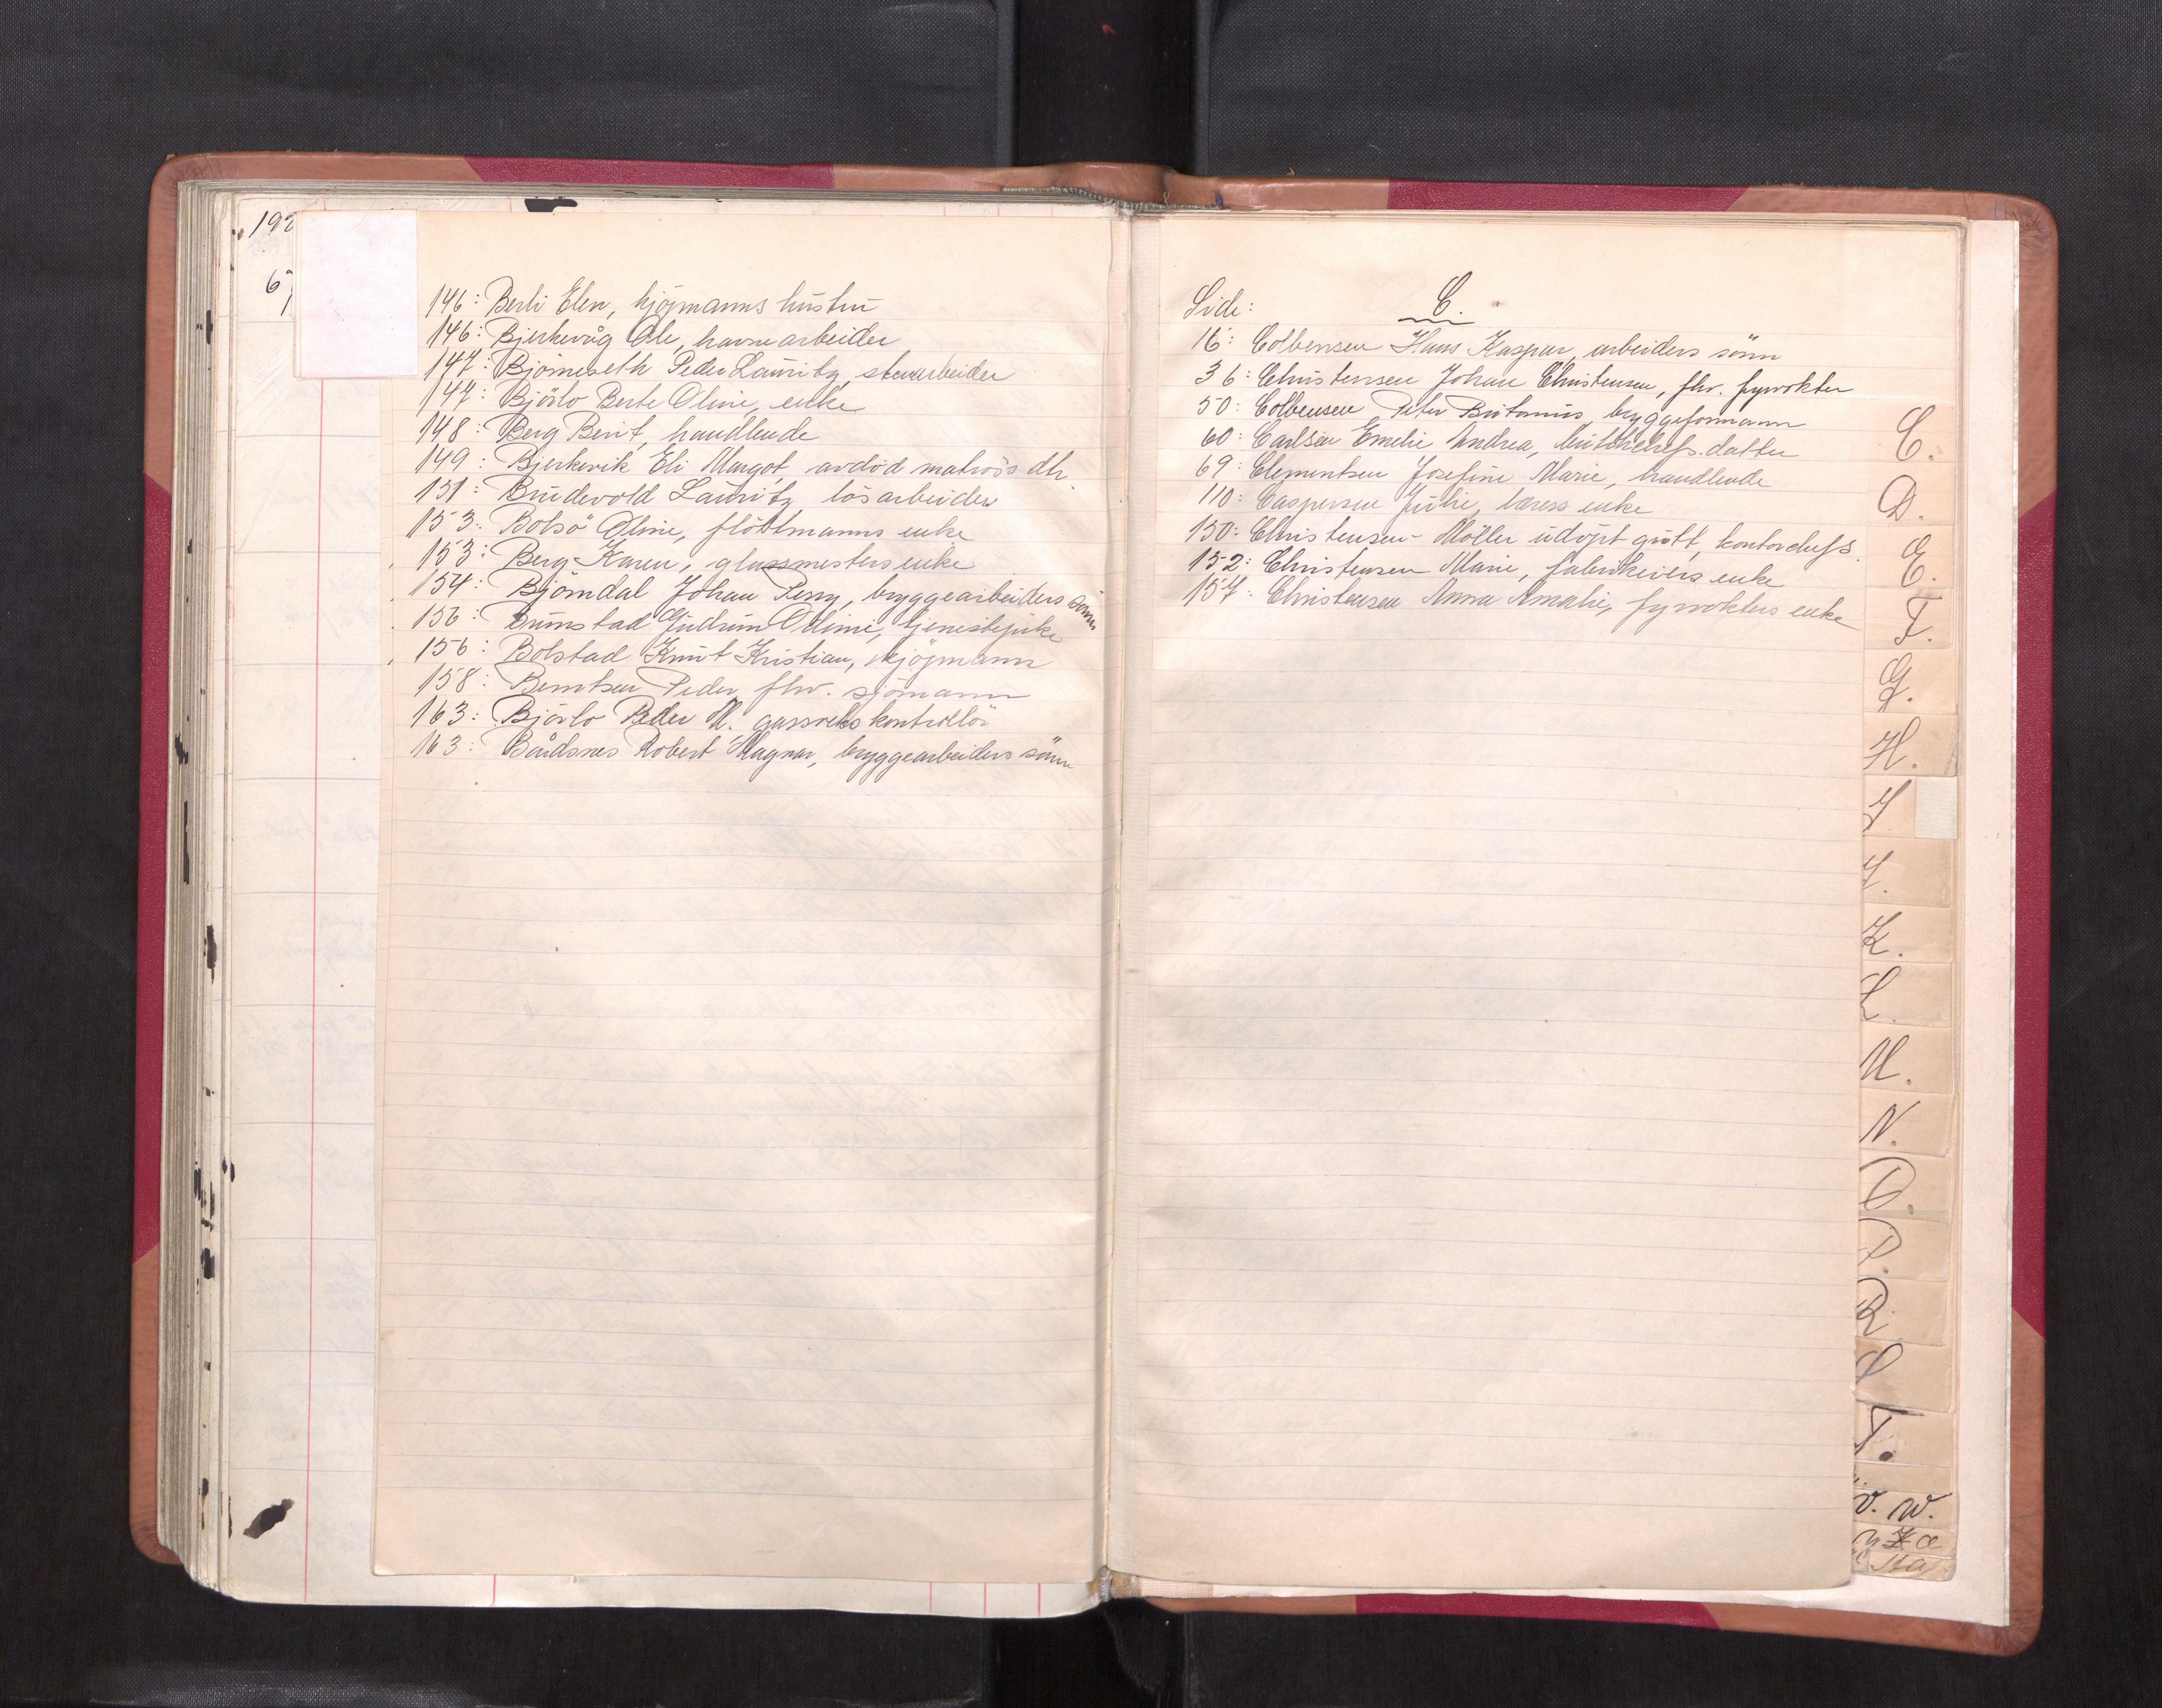 192
67
146: Berli Elen, kjöpmanns hustru
146: Bjerkevåg Ole, havnearbeider
147: Björneseth Peder Lauritz, stenarbeider
147: Björlo Berte Oline, enke
148: Berg Berit, handlende
149: Bjerkevik Eli Margot, avdöd matros's dtr.
151: Brudevold Lauritz, lösarbeider
153: Bolsö Oline, flöttmanns enke
153: Berg Karen, glassmesters enke
154: Björndal Johan Perry, bryggearbeiders sönn
156: Gudrun Oline, tjenestepike
156: Bolstad Knut Kristian, kjöpmann
158: Berntsen Peder, fhv. sjömann
163: Björlo Peder M. gassverks kontrollör
163: Båidsnes Robert Magnar, bryggearbeiders sönn
Side: C.
16: Colbensen Hans Kaspar, arbeiders sönn
36: Christensen Johan Christensen, fhv. fyrvokter
50: Colbensen Peter bryggeformann
60: Carlsen Emelie Andrea, datter
69: Clementsen Josefine Marie, handlende
110: Caspersen Julie, lærers enke
150: Christensen-Möller udöpt gutt, kontorchefs
152: Christensen Marie, fabrikeiers enke
157: Christensen Anna Amalie, fyrvokters enke
C.
D.
E.
F.
G.
H.
I
J.
K.
L.
M.
N.
O.
P.
R.
S
T.
V. W.